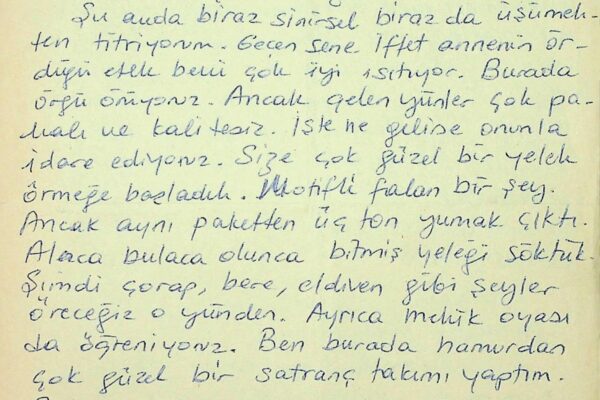 Şu anda biraz sinirsel biraz da üşümek-
ten titriyorum. Geçen sene İffet annenin ör-
düğü etek beni çok iyi ısıtıyor. Burada
örgü örüyoruz. Ancak gelen yünler çok pa-
halı ve kalitesiz. İşte ne gelirse onunla
idare ediyoruz. Size çok güzel bir yelek
örmeğe başladık. Motifli falan bir şey.
Ancak aynı paketten üç ton yumak çıktı.
Alaca bulaca olunca bitmiş yeleği söktük.
Şimdi çorap, bere, eldiven gibi şeyler
öreceğiz o yünden. Ayrıca mekik oyası
da öğreniyoruz. Ben burada hamurdan
çok güzel bir satranç takımı yaptım.